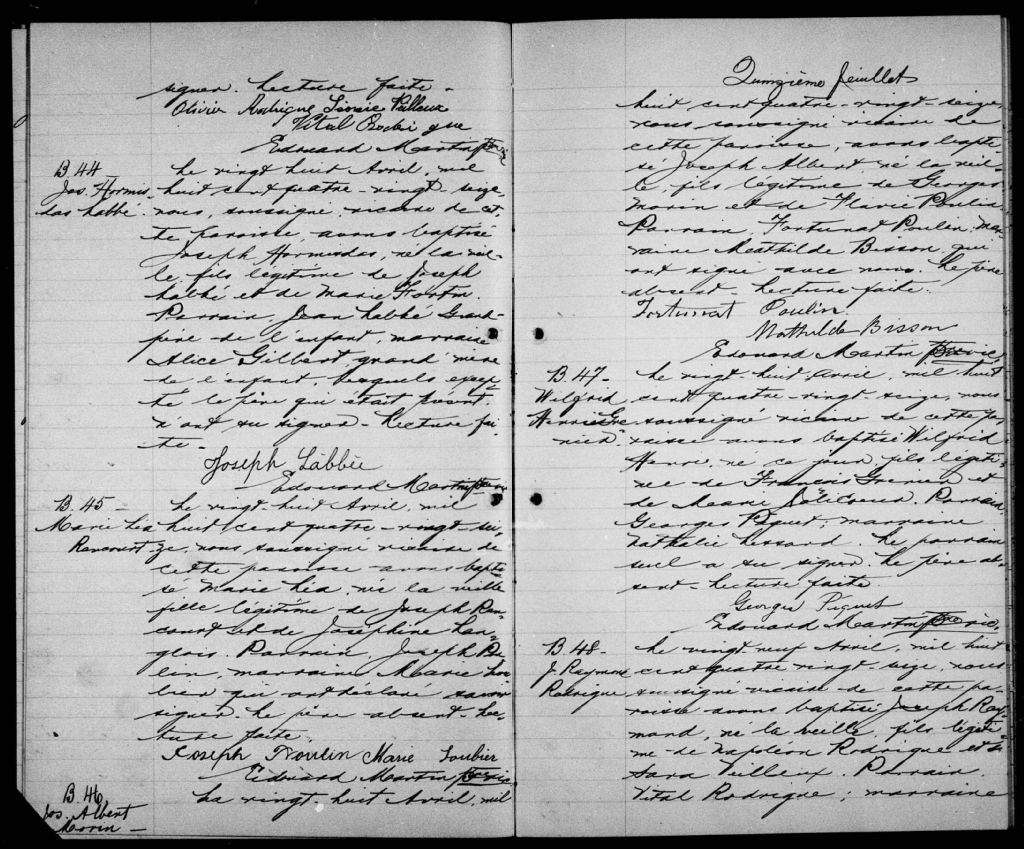 signer. Lecture faite -
Olivier Rodrigue Veilleux
Vital Rodrigue
Edouard Martin ptre vic
B. 44
Jos. Hormis
das Labbé
Le vingt huit Avril, mil
huit cent quatre-vingt seize
nous, soussigné, vicaire de cet-
te paroisse, avons baptisé
Joseph Hormisdas, né la veil-
le, fils légitime de Joseph
Labbé et de Marie Fortin.
Parrain, Jean Labbé Grand-
père de l'enfant, marraine
Alice Gilbert, grand'mère
de l'enfant, lesquels excep-
té le père qui était présent,
n'ont su signer - Lecture fai-
te -
Joseph Labbée
Edouard Martin ptre vic
B. 45 -
Marie Léa
Rancourt
Le vingt huit Avril, mil
huit cent quatre-vingt sei-
ze, nous soussigné vicaire de
cette paroisse avons bapti-
sé Marie Léa, née la veille
fille légitime de Joseph Ran
court et de Joséphine Lan-
glois. Parrain, Joseph Pou
lin, marraine Marie Lou
bier qui ont déclaré savoir
signer. Le père absent - Lec-
ture faite.
Joseph Poulin Marie Loubier
Edouard Martin ptre vic
B. 46
Jos. Albert
Morin -
Le vingt huit Avril, mil
Quinzième feuillet
huit cent quatre-vingt-seize,
nous soussigné vicaire de
cette paroisse, avons bapti-
sé Joseph Albert, né la veil-
le, fils légitime de Georges
Morin et de Flavie Poulin
Parrain, Fortunat Poulin, mar-
raine Mathilde Bisson, qui
ont signé avec nous. Le père
absent - Lecture faite.
Fortunat Poulin
Mathilde Bisson
Edouard Martin ptre vic.
B. 47 -
Wilfrid
Henri Gre
nier
Le vingt-huit Avril, mil huit
cent quatre-vingt seize, nous
soussigné vicaire de cette pa-
roisse avons baptisé Wilfrid
Henri, né ce jour, fils légiti-
me de François Grenier et
de Marie Jolicoeur. Parrain,
Georges Piquet, marraine
Nathalie Lessard. Le parrain
seul a su signer. Le père ab-
sent - Lecture faite
Georges Piquet
Edouard Martin ptre vic.
B. 48 -
J. Raymond
Rodrigue
Le vingt neuf Avril, mil huit
cent quatre vingt-seize, nous
soussigné vicaire de cette pa-
roisse avons baptisé Joseph Ray
mond, né la veille, fils légiti-
me de Napoléon Rodrigue et de
Sara Veilleux. Parrain,
Vital Rodrigue; marraine